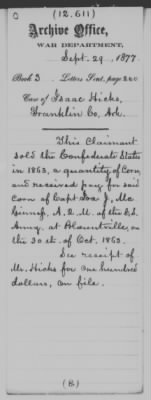 (12.611)
Archive Office,
WAR DEPARTMENT,
Sept. 29, 1877.
Book 3 Letters Sent, page 220
Case of Isaac Hicks,
Franklin Co, Ark.
This Claimant
sold the Confederate States
in 1863, a quantity of Corn,
and received pay for said
Corn of Capt J. Mc
A. Q. M. of the C.S.
Army, at Blountville, on
the 30th of Oct. 1863.
See receipt of
Mr. Hicks for one hundred
dollars, on file.